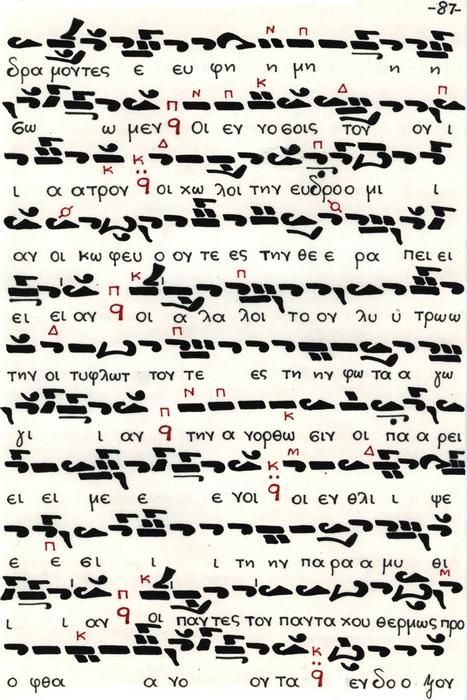 -87-
Ν Π
δρα μοντες ε ευ φη η μη η η
Π Ν Π Κ Δ Π
σω ω μεν q Οι εν νο σοις τον ον ι
Κ Κ Δ Π
ι α ατρον q οι χω λοι την ευ δρο ο μι ι
αν οι κω φευ ο ον τε ες την θε ε ρα πει ει
Π Κ Π
ει ει αν q οι α λα λοι το ον λυ υ τρω ω
Δ Π
την οι τυφλωτ τον τε ες τη ην φω τα α γω
Π Ν Π Κ
γι ι αν q την α νορθω σιν οι πα α ρει
Κ Μ Δ
ει ει με ε ε νοι q οι εν θλι ι ψε
Π
ε ε σι ι ι τη ην πα ρα α μυ θι
Π Κ Μ
ι ι αν q οι παντες τον παντα χου θερμως προ
Κ Κ
ο φθα α νο ον τα q εν δο ο ξον